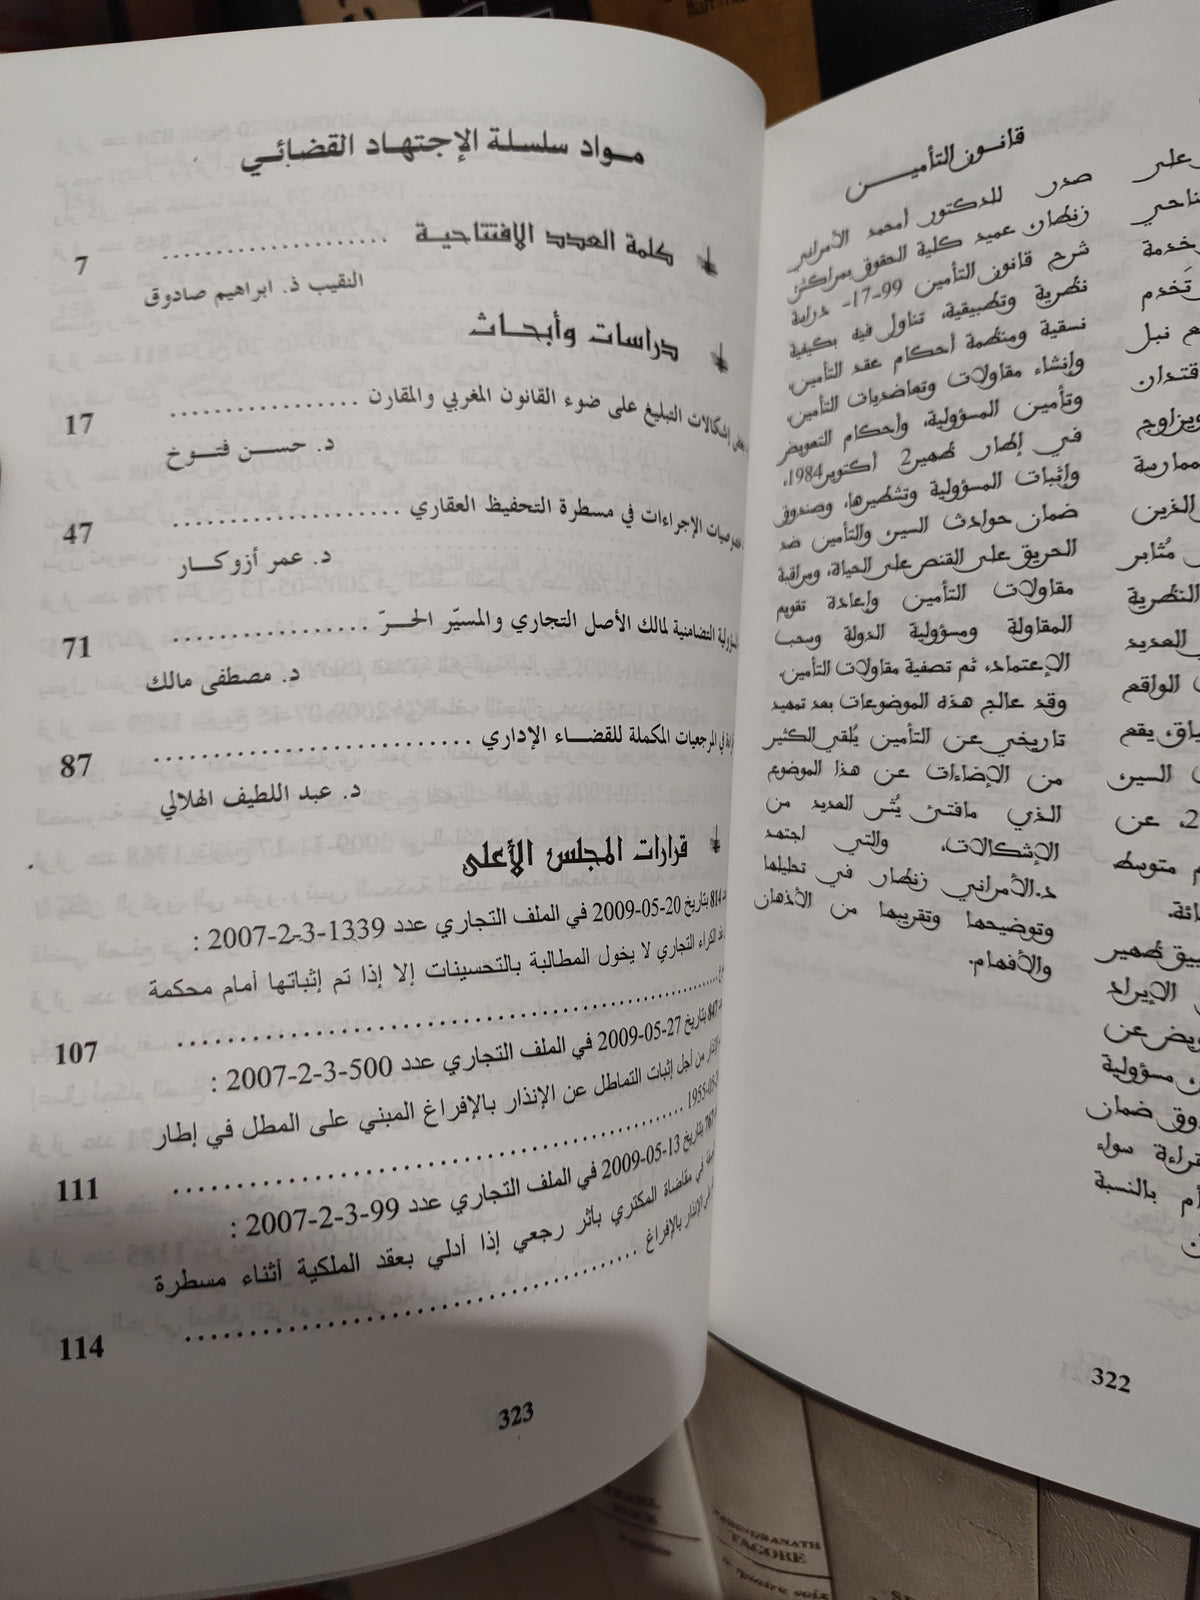 على
خدمة
تَخدم
نبل
ويزاوج
الذين
مُثابر
النظرية
العديد
الواقع
يقع
السير
عن
متوسط
ظهير
الإيراد
عن
مسؤولية
ضمان
سواء
بالنسبة
قانون التأمين
صدر للدكتور أمحمد الأمراني
زنطار عميد كلية الحقوق بمراكش
شرح قانون التأمين 99-17- دراسة
نظرية وتطبيقية، تناول فيه بكيفية
نسقية ومنظمة أحكام عقد التأمين،
وإنشاء مقاولات وتعاضديات التأمين،
وتأمين المسؤولية، وأحكام التعويض
في إطار ظهير2 أكتوبر1984،
وإثبات المسؤولية وتشطيرها، وصندوق
ضمان حوادث السير، والتأمين ضد
الحريق على القنص على الحياة، ومراقبة
مقاولات التأمين وإعادة تقويم
المقاولة ومسؤولية الدولة وسحب
الإعتماد، ثم تصفية مقاولات التأمين.
وقد عالج هذه الموضوعات بعد تمهيد
تاريخي عن التأمين يُلقي الكثير
من الإضاءات عن هذا الموضوع
الذي مافتئ يُثير العديد من
الإشكالات، والتي اجتهد
د.الأمراني زنطار في تحليلها
وتوضيحها وتقريبها من الأذهان
والأفهام.
322
مواد سلسلة الإجتهاد القضائي
كلمة العدد الافتتاحية .................. 7
النقيب ذ. ابراهيم صادوق
دراسات وأبحاث
بعض إشكالات التبليغ على ضوء القانون المغربي والمقارن .................. 17
د. حسن فتوخ
الإجراءات في مسطرة التحفيظ العقاري .................. 47
د. عمر أزوكار
التضامنية لمالك الأصل التجاري والمسيّر الحرّ .................. 71
د. مصطفى مالك
في المرجعيات المكملة للقضاء الإداري .................. 87
د. عبد اللطيف الهلالي
قرارات المجلس الأعلى
814 بتاريخ 20-05-2009 في الملف التجاري عدد 1339-3-2-2007 :
الكراء التجاري لا يخول المطالبة بالتحسينات إلا إذا تم إثباتها أمام محكمة
.................. 107
847 بتاريخ 27-05-2009 في الملف التجاري عدد 500-3-2-2007 :
من أجل إثبات التماطل عن الإنذار بالإفراغ المبني على المطل في إطار
1955 .................. 111
767 بتاريخ 13-05-2009 في الملف التجاري عدد 99-3-2-2007 :
في مقاضاة المكتري بأثر رجعي إذا أدلي بعقد الملكية أثناء مسطرة
الإنذار بالإفراغ .................. 114
323
PEARL
BUCK
RABINDRANATH
TAGORE